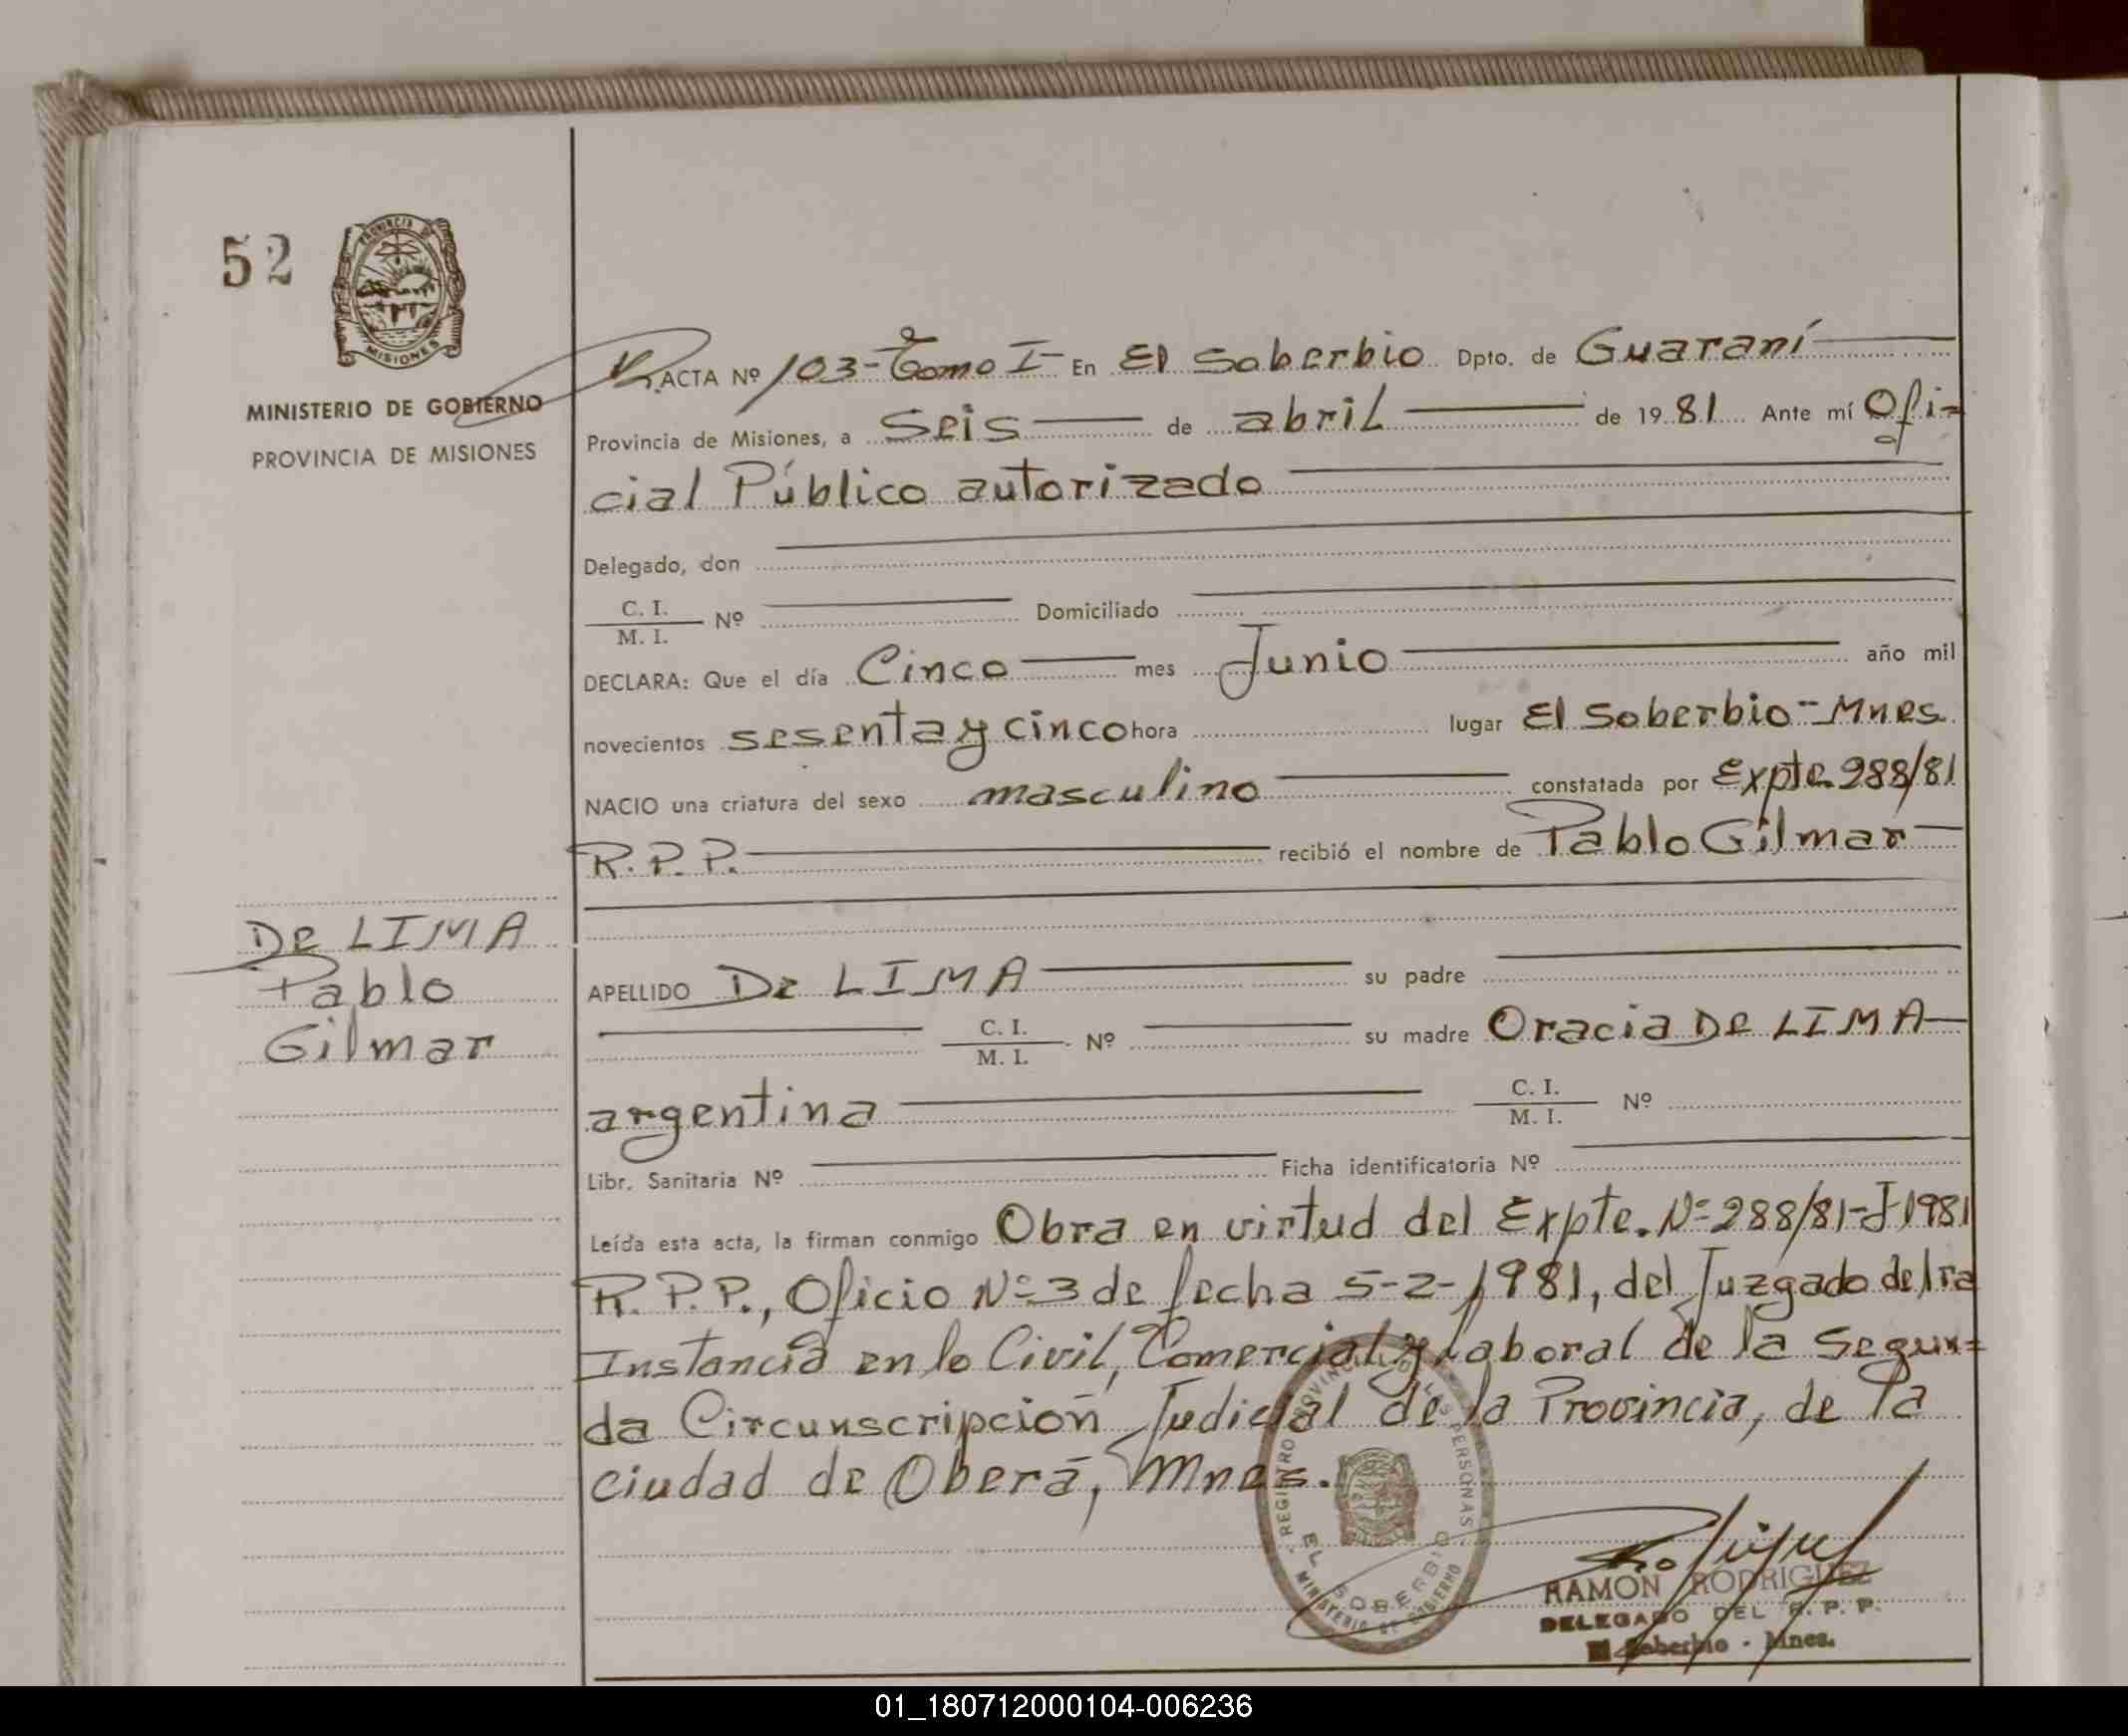 52
PROVINCIA DE
MISIONES
MINISTERIO DE GOBIERNO
PROVINCIA DE MISIONES
ACTA Nº 103-Tomo I- En El Soberbio Dpto. de Guaraní
Provincia de Misiones, a Seis de abril de 19 81 Ante mí Ofi=
cial Público autorizado
Delegado, don
C. I.
M. I. Nº Domiciliado
DECLARA: Que el día Cinco mes Junio año mil
novecientos sesenta y cinco hora lugar El Soberbio-Mnes.
NACIO una criatura del sexo masculino constatada por Expte 288/81
R.P.P. recibió el nombre de Pablo Gilmar
De LIMA
Pablo
Gilmar
APELLIDO De LIMA su padre
C. I.
M. I. Nº su madre Oracia De LIMA
argentina C. I.
M. I. Nº
Libr. Sanitaria Nº Ficha identificatoria Nº
Leída esta acta, la firman conmigo Obra en virtud del Expte. Nº 288/81-J-1981
R.P.P., Oficio Nº 3 de fecha 5-2-1981, del Juzgado de 1ra
Instancia en lo Civil, Comercial y Laboral de la Segun=
da Circunscripción Judicial de la Provincia, de la
ciudad de Oberá, Mnes.
REGISTRO PROVINCIAL DE LAS PERSONAS
EL SOBERBIO
MINISTERIO DE GOBIERNO
RAMON RODRIGUEZ
DELEGADO DEL R. P. P.
El Soberbio - Mnes.
01_180712000104-006236